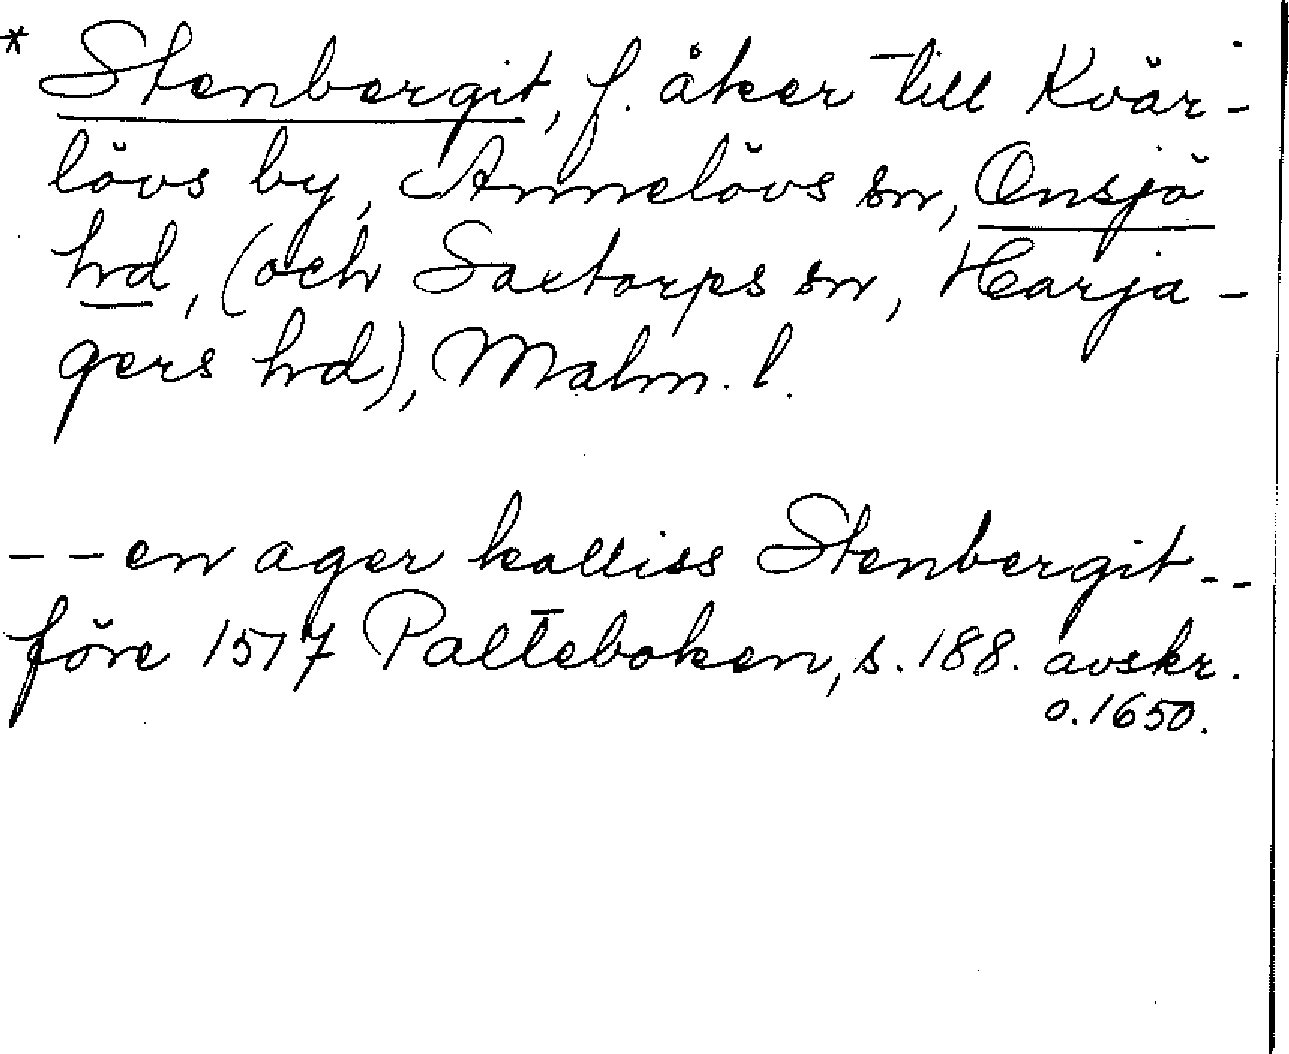 * Stenbergit, f. åker till Kvär-
lövs by, Annelövs sn, Onsjö
hrd, (och Saxtorps sn, Harja-
gers hrd), Malm. l.
-- en ager kalliss Stenbergit --
före 1517 Palteboken, s. 188. avskr.
o. 1650.